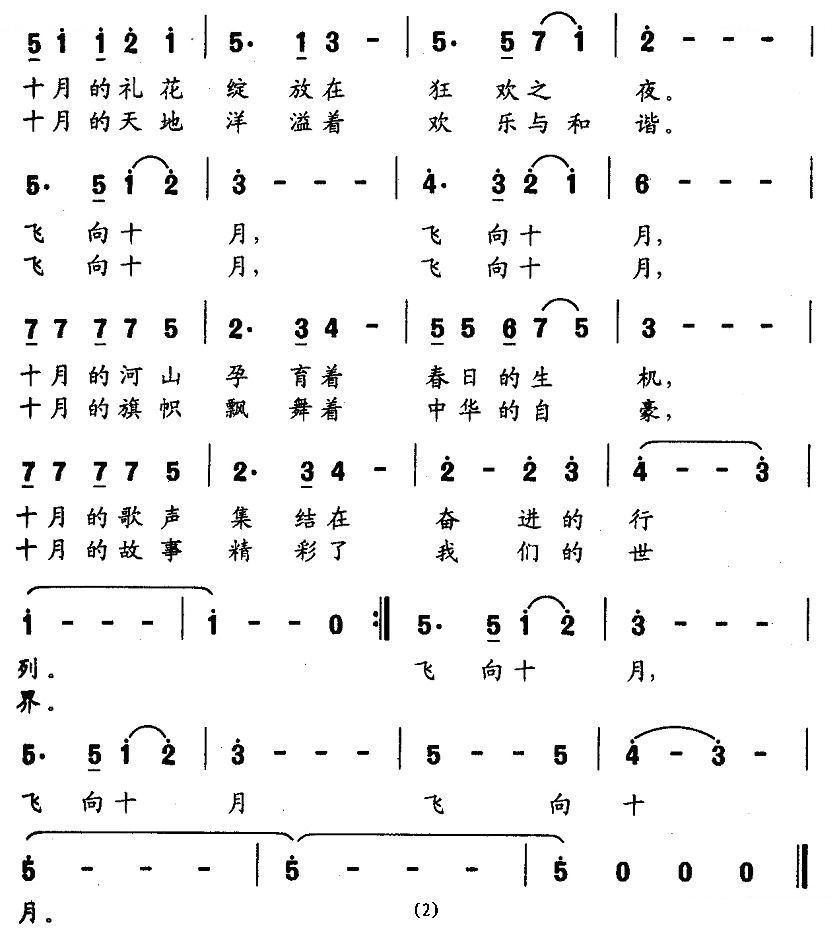 5 1 1 2 1 | 5· 1 3 - | 5· 5 7 1 | 2 - - - |
十月的礼花 绽 放在 狂 欢之 夜。
十月的天地 洋 溢着 欢 乐与和 谐。
5· 5 1 2 | 3 - - - | 4· 3 2 1 | 6 - - - |
飞 向十 月, 飞 向十 月,
飞 向十 月, 飞 向十 月,
7 7 7 7 5 | 2· 3 4 - | 5 5 6 7 5 | 3 - - - |
十月的河山 孕 育着 春日的生 机,
十月的旗帜 飘 舞着 中华的自 豪,
7 7 7 7 5 | 2· 3 4 - | 2 - 2 3 | 4 - - 3 |
十月的歌声 集 结在 奋 进的 行
十月的故事 精 彩了 我 们的 世
1 - - - | 1 - - 0 :‖ 5· 5 1 2 | 3 - - - |
列。 飞 向十 月,
界。
5· 5 1 2 | 3 - - - | 5 - - 5 | 4 - 3 - |
飞 向十 月 飞 向 十
5 - - - | 5 - - - | 5 0 0 0 ‖
月。 (2)